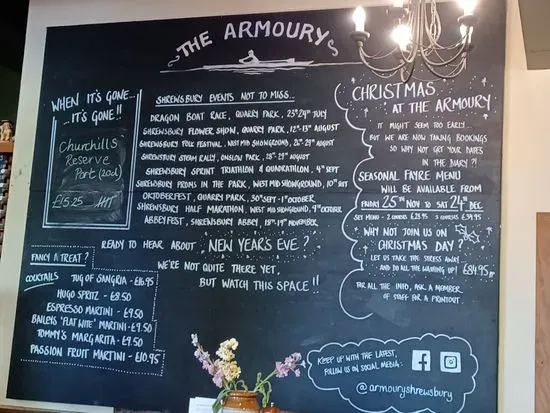 THE ARMOURY
WHEN IT'S GONE...
...IT'S GONE!!
Churchills
Reserve
Port (20cl)
£15.25
SHREWSBURY EVENTS NOT TO MISS...
DRAGON BOAT RACE, QUARRY PARK, 23rd 24th JULY
SHREWSBURY FLOWER SHOW, QUARRY PARK, 12th-13th AUGUST
SHREWSBURY FOLK FESTIVAL, WEST MID SHOWGROUND, 26th-29th AUGUST
SHREWSBURY STEAM RALLY, ONSLOW PARK, 28th-29th AUGUST
SHREWSBURY SPRINT TRIATHLON & QUADRATHLON, 4th SEPT
SHREWSBURY PROMS IN THE PARK, WEST MID SHOWGROUND, 10th SEPT
OKTOBERFEST, QUARRY PARK, 30th SEPT-1st OCTOBER
SHREWSBURY HALF MARATHON, WEST MID SHOWGROUND, 9th OCTOBER
ABBEYFEST, SHREWSBURY ABBEY, 18th-19th NOVEMBER
READY TO HEAR ABOUT NEW YEAR'S EVE?
WE'RE NOT QUITE THERE YET,
BUT WATCH THIS SPACE!!
FANCY A TREAT?
COCKTAILS
JUG OF SANGRIA - £16.95
HUGO SPRITZ - £8.50
ESPRESSO MARTINI - £9.50
BAILEYS 'FLAT WHITE' MARTINI - £9.50
TOMMY'S MARGARITA - £9.50
PASSION FRUIT MARTINI - £10.95
CHRISTMAS
AT THE ARMOURY
IT MIGHT SEEM TOO EARLY...
BUT WE ARE NOW TAKING BOOKINGS
SO WHY NOT GET YOUR DATES
IN THE DIARY?!
SEASONAL FAYRE MENU
WILL BE AVAILABLE FROM
FRIDAY 25TH NOV TO SAT 24TH DEC
SET MENU - 2 COURSES £28.95 3 COURSES £34.95
WHY NOT JOIN US ON
CHRISTMAS DAY?
LET US TAKE THE STRESS AWAY
AND DO ALL THE WASHING UP! £84.95
FOR ALL THE INFO, ASK A MEMBER
OF STAFF FOR A PRINTOUT
KEEP UP WITH THE LATEST,
FOLLOW US ON SOCIAL MEDIA:
@armouryshrewsbury